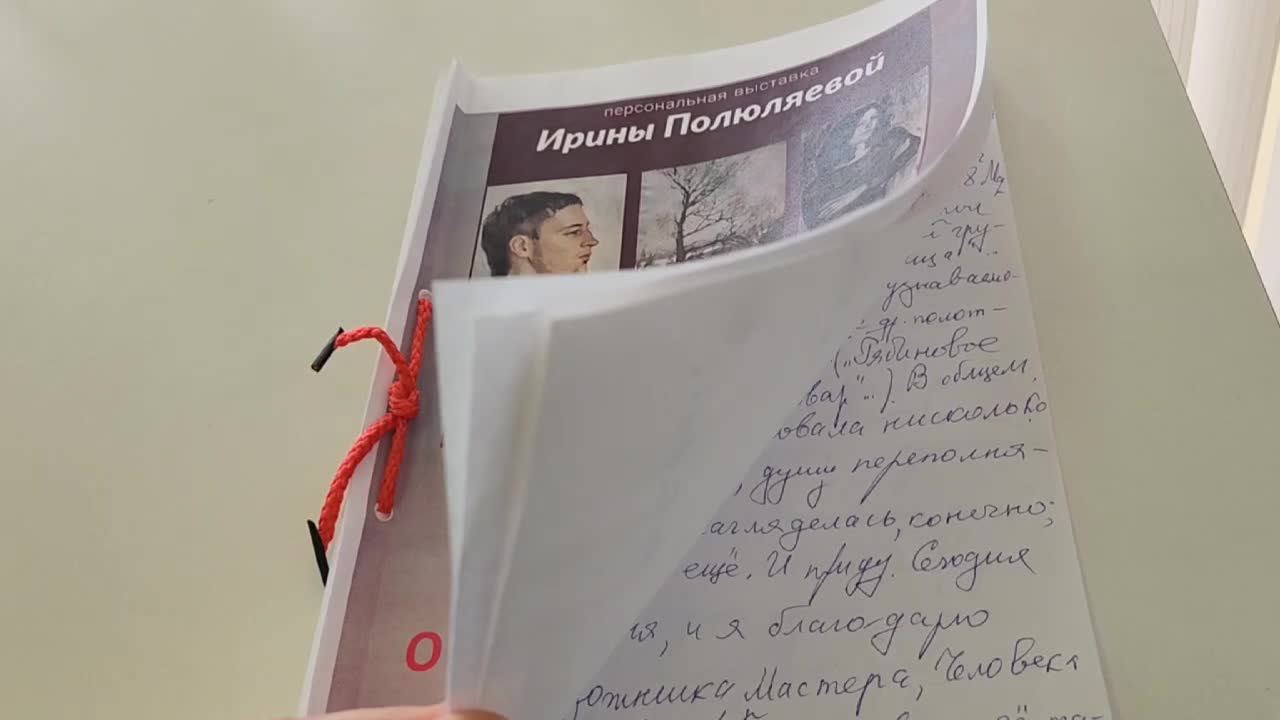 персональная выставка
Ирины Полюляевой
О
8
гру-
узнаваемо-
др. полот-
("Рябиновое
вар"...). В общем,
овала нисколько
, душу переполня-
агляделась, конечно;
ещё. И приду. Сегодня
ия, и я благодарю
ожника Мастера, Человека